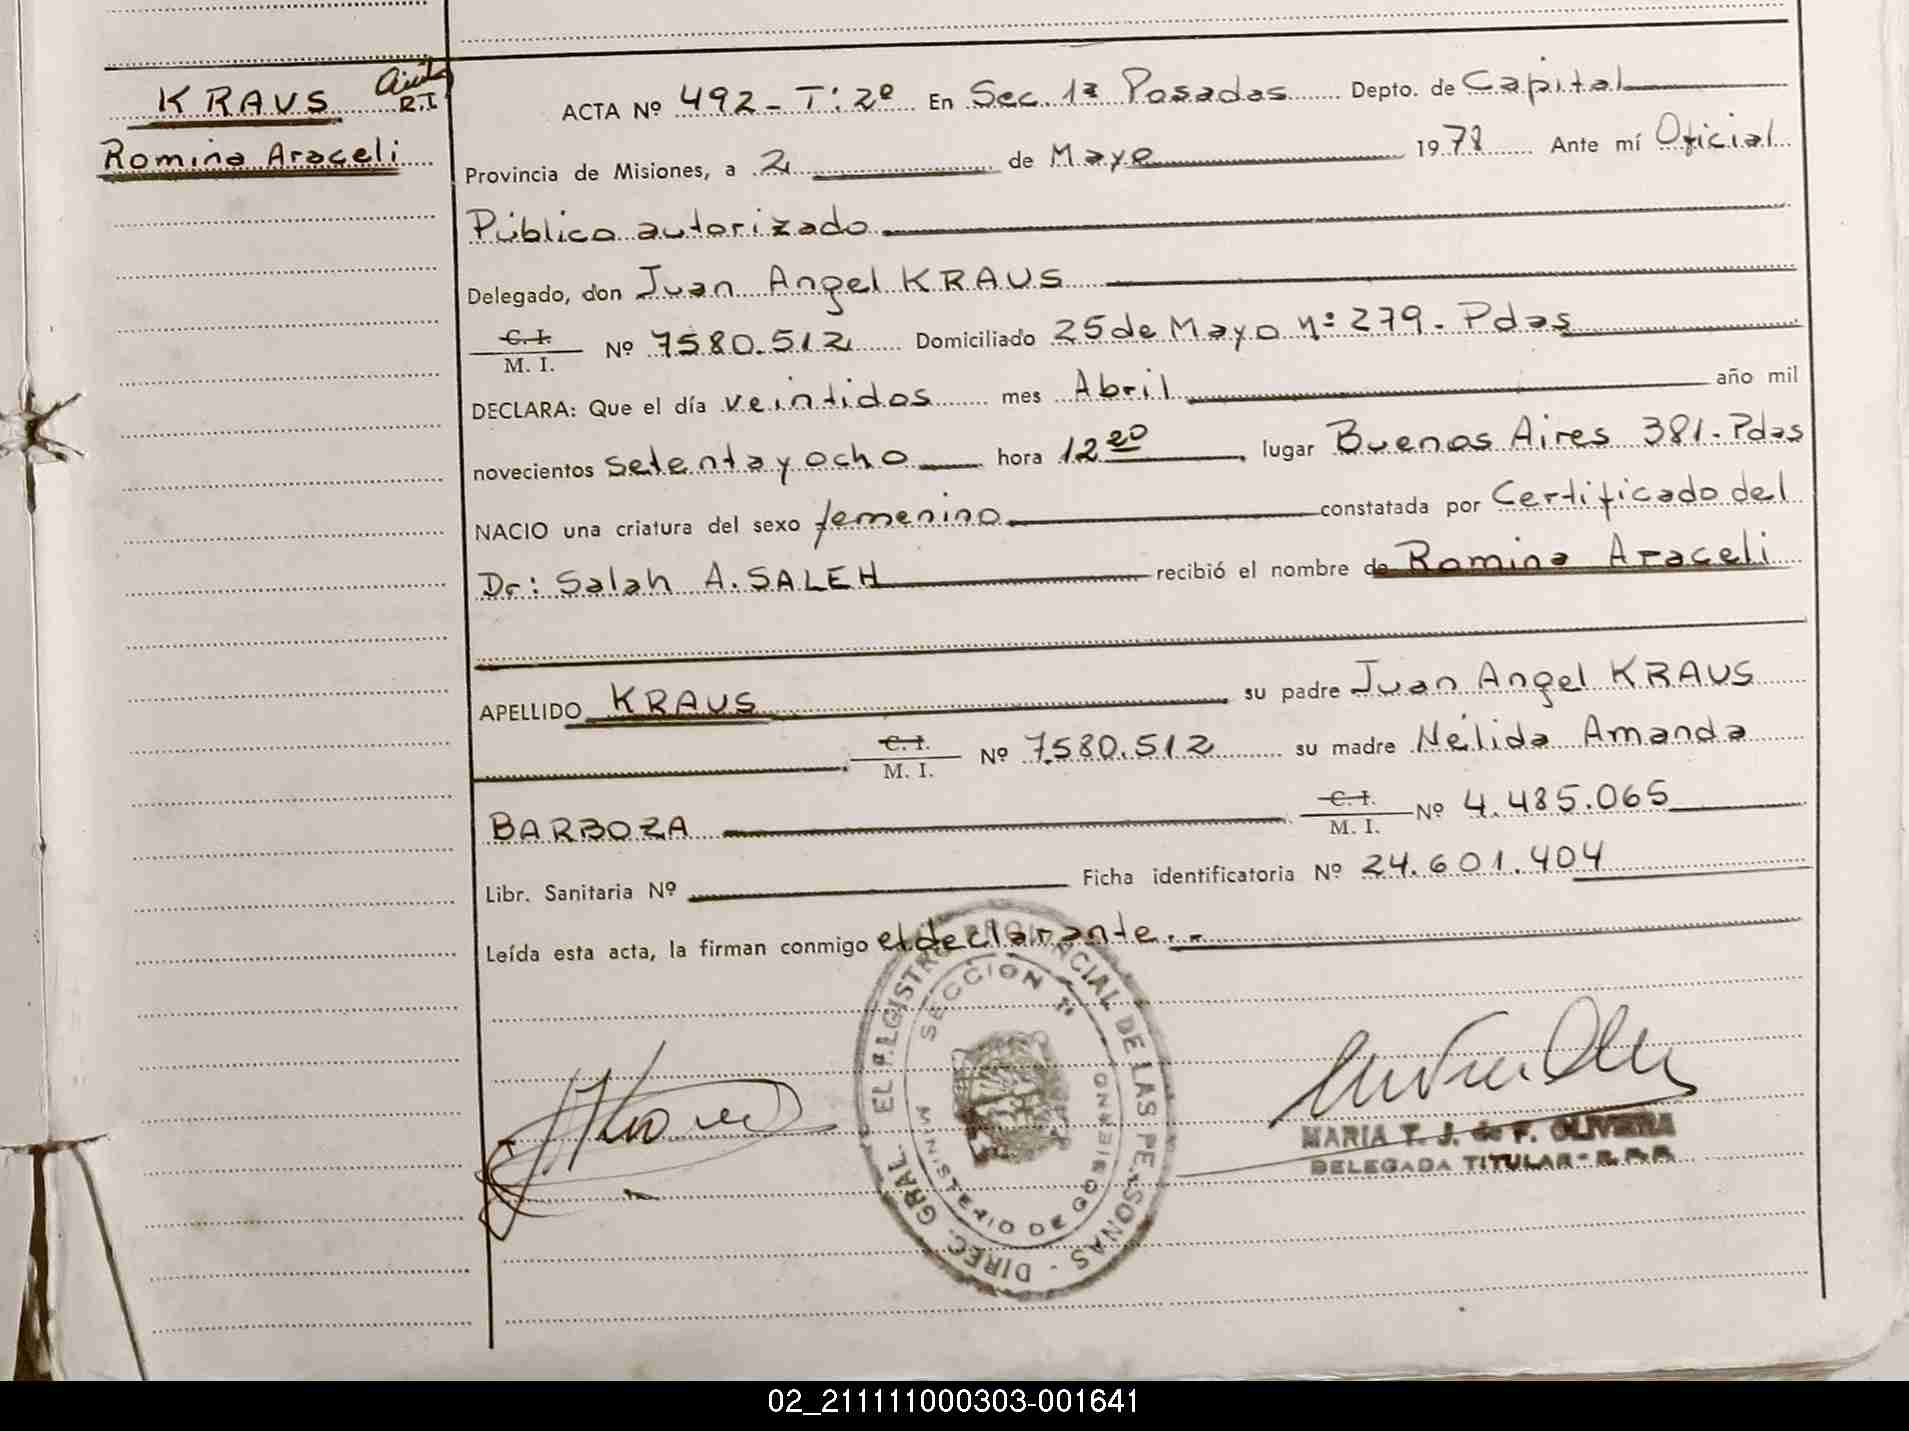 KRAUS
R.I
Romina Araceli
ACTA Nº 492 - T: 2º En Sec. 1ª Posadas Depto. de Capital
Provincia de Misiones, a 2 de Mayo 1978 Ante mí Oficial
Público autorizado
Delegado, don Juan Angel KRAUS
C. I.
M. I. Nº 7580.512 Domiciliado 25 de Mayo Nº 279 - Pdas
DECLARA: Que el día veintidos mes Abril año mil
novecientos setenta y ocho hora 12 20, lugar Buenos Aires 381 - Pdas
NACIO una criatura del sexo femenino constatada por Certificado del
Dr: Salah A. SALEH recibió el nombre de Romina Araceli
APELLIDO KRAUS su padre Juan Angel KRAUS
C. I.
M. I. Nº 7.580.512 su madre Nélida Amanda
BARBOZA C. I.
M. I. Nº 4.485.065
Libr. Sanitaria Nº Ficha identificatoria Nº 24.601.404
Leída esta acta, la firman conmigo el declarante. -
DIREC. GRAL. EL REGISTRO PROVINCIAL DE LAS PERSONAS -
SECCION 1ª
MINISTERIO DE GOBIERNO
MARIA T. J. de F. OLIVERA
DELEGADA TITULAR - R.P.P.
02_211111000303-001641